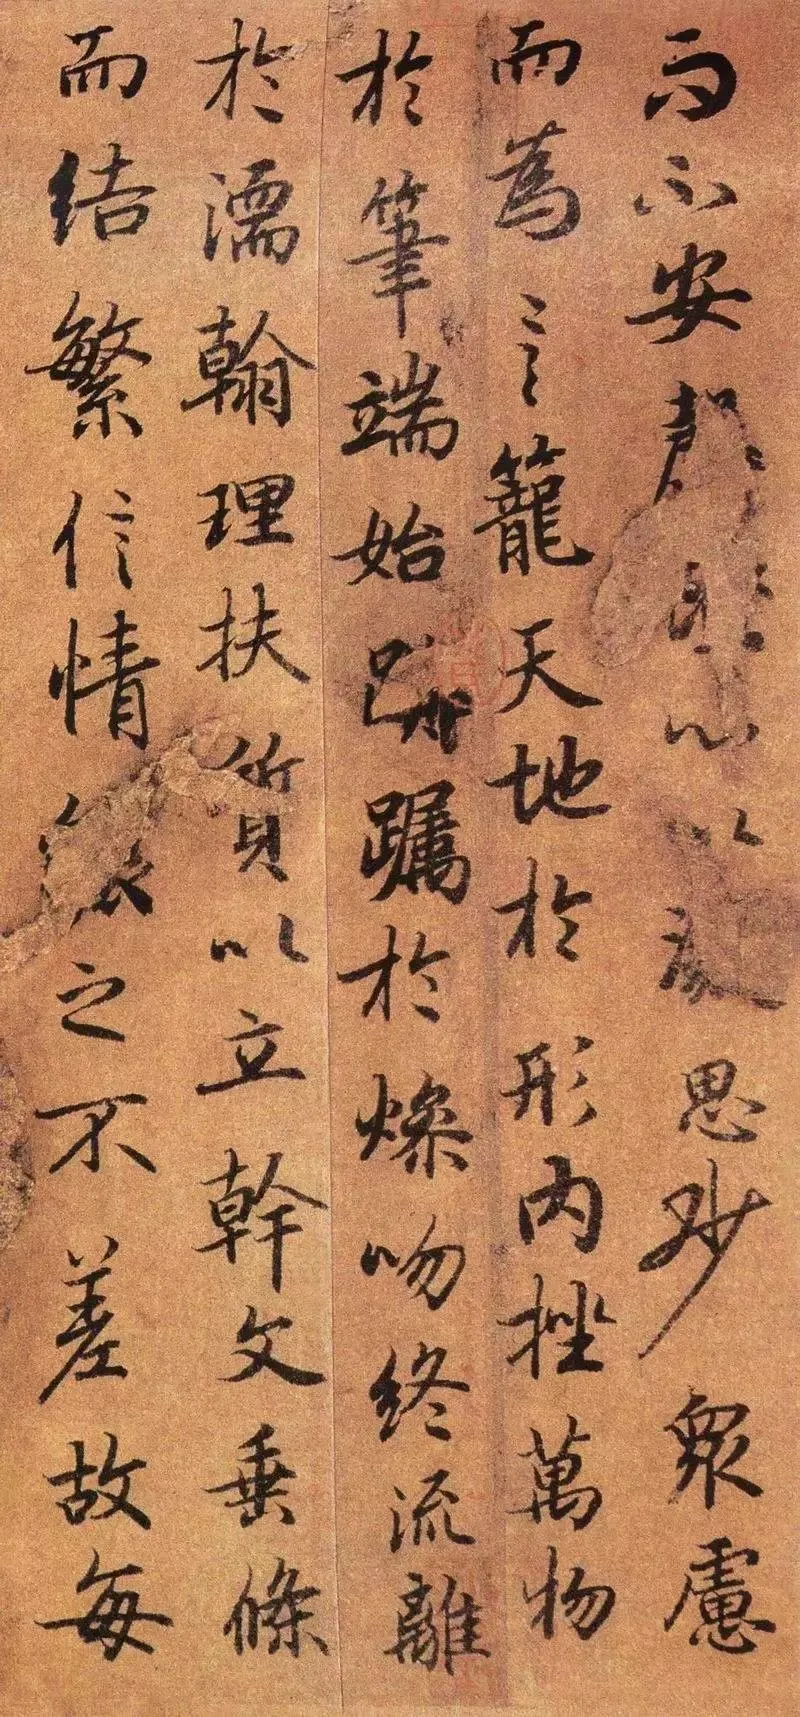 而不安心以思眾慮
而為言籠天地於形內挫萬物
於筆端始躅於燥吻終流離
於濡翰理扶質以立幹文垂條
而結繁信情之不差故每